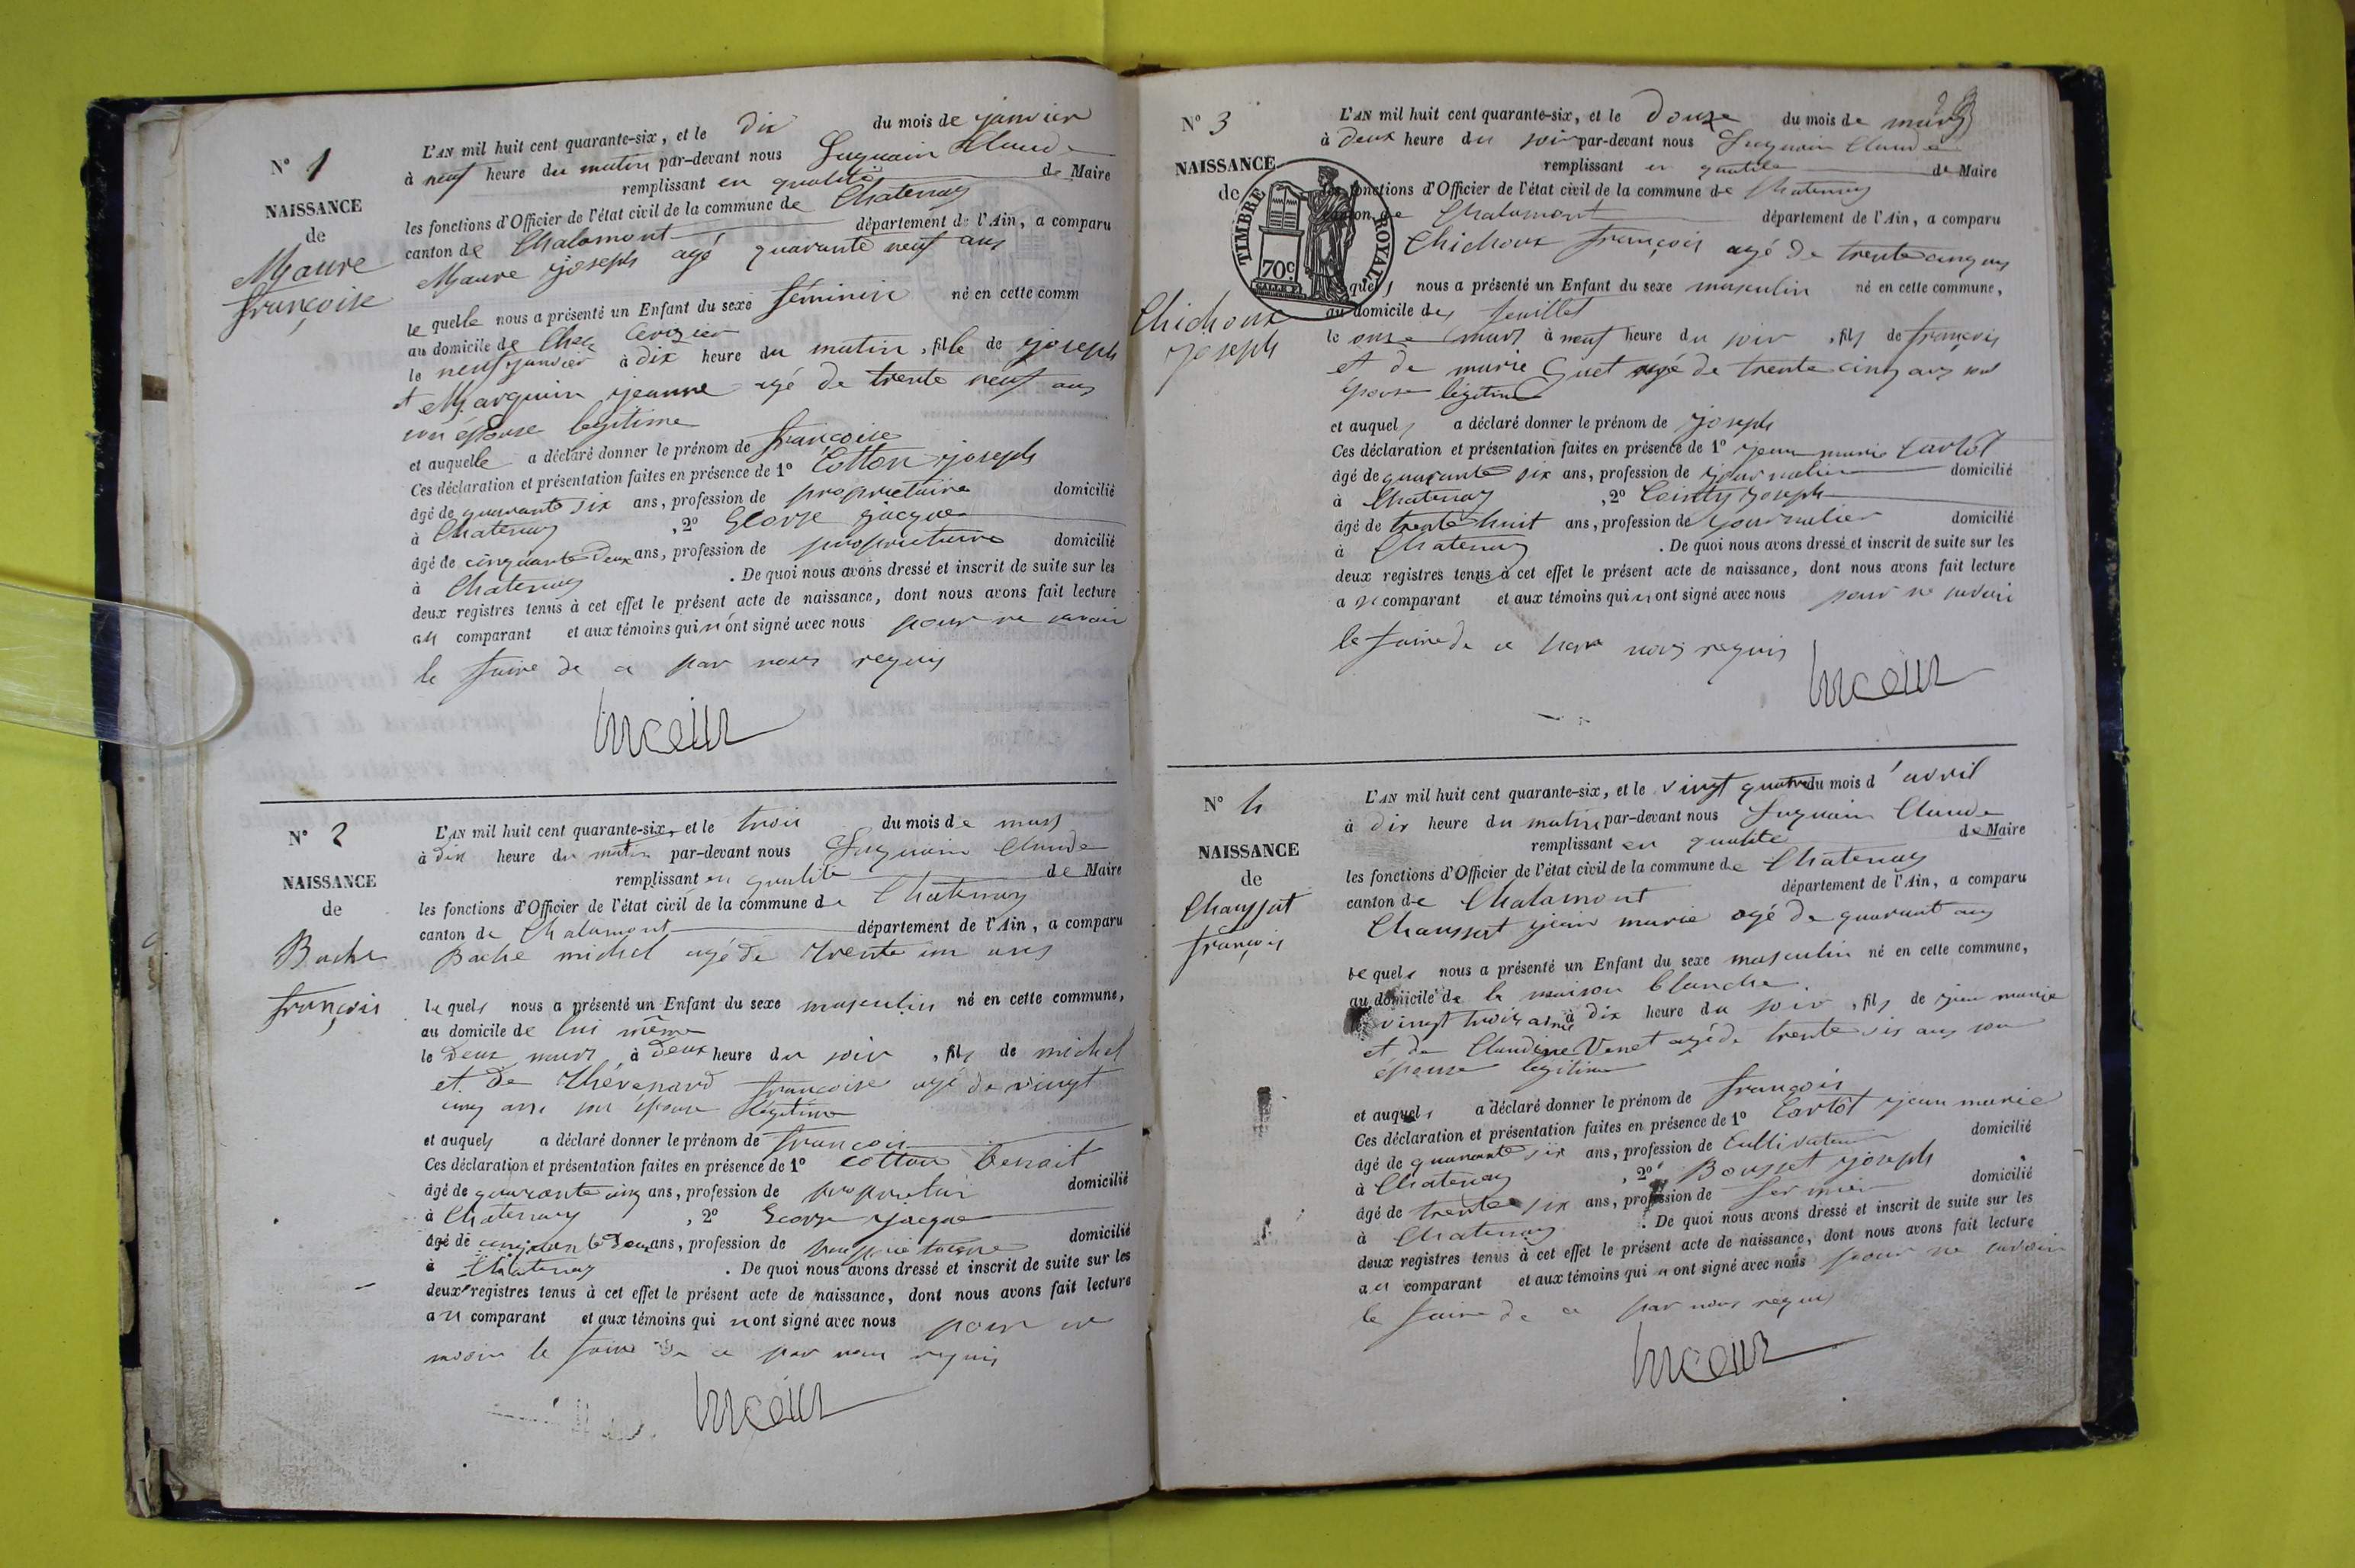 N° 1
NAISSANCE
de
Maure
françoise
L'AN mil huit cent quarante-six, et le dix du mois de janvier
à neuf heure du matin par-devant nous Claude
remplissant en qualité de Maire
les fonctions d'Officier de l'état civil de la commune de Chatenay
canton de Chalamont département de l'Ain, a comparu
Maure joseph agé quarante neuf ans
le quelle nous a présenté un Enfant du sexe féminin né en cette comm
au domicile de Chez Cerizier
le neuf janvier à dix heure du matin, fille de joseph
et Marguin jeanne agé de trente neuf ans
son épouse legitime
et auquelle a déclaré donner le prénom de françoise
Ces déclaration et présentation faites en présence de 1° Cotton joseph
âgé de quarante six ans, profession de propriétaire domicilié
à Chatenay, 2° George jacque
âgé de cinquante deux ans, profession de propriétaire domicilié
à Chatenay. De quoi nous avons dressé et inscrit de suite sur les
deux registres tenus à cet effet le présent acte de naissance, dont nous avons fait lecture
au comparant et aux témoins qui n ont signé avec nous pour ne savoir
le faire de ce par nous requis
N° 2
NAISSANCE
de
Bache
françois
L'AN mil huit cent quarante-six, et le trois du mois de mars
à dix heure du matin par-devant nous Claude
remplissant en qualité de Maire
les fonctions d'Officier de l'état civil de la commune de Chatenay
canton de Chalamont département de l'Ain, a comparu
Bache michel agé de trente un ans
le quels nous a présenté un Enfant du sexe masculin né en cette commune,
au domicile de lui même
le deux mars à deux heure du soir, fils de michel
et de Thévenard françoise agé de vingt
cinq ans son épouse légitime
et auquels a déclaré donner le prénom de françois
Ces déclaration et présentation faites en présence de 1° Cotton benoit
âgé de quarante cinq ans, profession de proprietair domicilié
à Chatenay, 2° George jacque
âgé de cinquante deux ans, profession de propriétaire domicilié
à Chatenay. De quoi nous avons dressé et inscrit de suite sur les
deux registres tenus à cet effet le présent acte de naissance, dont nous avons fait lecture
au comparant et aux témoins qui n ont signé avec nous pour ne
savoir le faire de ce par nous requis
N° 3
NAISSANCE
de
Chichoux
joseph
TIMBRE ROYAL
70c.
L'AN mil huit cent quarante-six, et le douze du mois de mars
à deux heure du soir par-devant nous Claude
remplissant en qualité de Maire
les fonctions d'Officier de l'état civil de la commune de Chatenay
canton de Chalamont département de l'Ain, a comparu
Chichoux françois agé de trente cinq ans
quels nous a présenté un Enfant du sexe masculin né en cette commune,
au domicile des feuilles
le onze mars à neuf heure du soir, fils de françois
et de marie Guet agé de trente cinq ans son
épouse légitime
et auquels a déclaré donner le prénom de joseph
Ces déclaration et présentation faites en présence de 1° jean marie Cartot
âgé de quarante six ans, profession de journalier domicilié
à Chatenay, 2° joseph
âgé de trente huit ans, profession de journalier domicilié
à Chatenay. De quoi nous avons dressé et inscrit de suite sur les
deux registres tenus à cet effet le présent acte de naissance, dont nous avons fait lecture
au comparant et aux témoins qui n ont signé avec nous pour ne savoir
le faire de ce par nous requis
N° 4
NAISSANCE
de
Chaussat
françois
L'AN mil huit cent quarante-six, et le vingt quatre du mois d'avril
à dix heure du matin par-devant nous Claude
remplissant en qualité de Maire
les fonctions d'Officier de l'état civil de la commune de Chatenay
canton de Chalamont département de l'Ain, a comparu
Chaussat jean marie agé de quarant ans
le quels nous a présenté un Enfant du sexe masculin né en cette commune,
au domicile de la maison blanche
vingt trois à dix heure du soir, fils de jean marie
et de Claudine Venet agé de trente six ans son
épouse legitime
et auquels a déclaré donner le prénom de françois
Ces déclaration et présentation faites en présence de 1° Cartot jean marie
âgé de quarante six ans, profession de Cultivateur domicilié
à Chatenay, 2° Bousset joseph
âgé de trente six ans, profession de fermier domicilié
à Chatenay. De quoi nous avons dressé et inscrit de suite sur les
deux registres tenus à cet effet le présent acte de naissance, dont nous avons fait lecture
au comparant et aux témoins qui n ont signé avec nous pour ne savoir
le faire de ce par nous requis